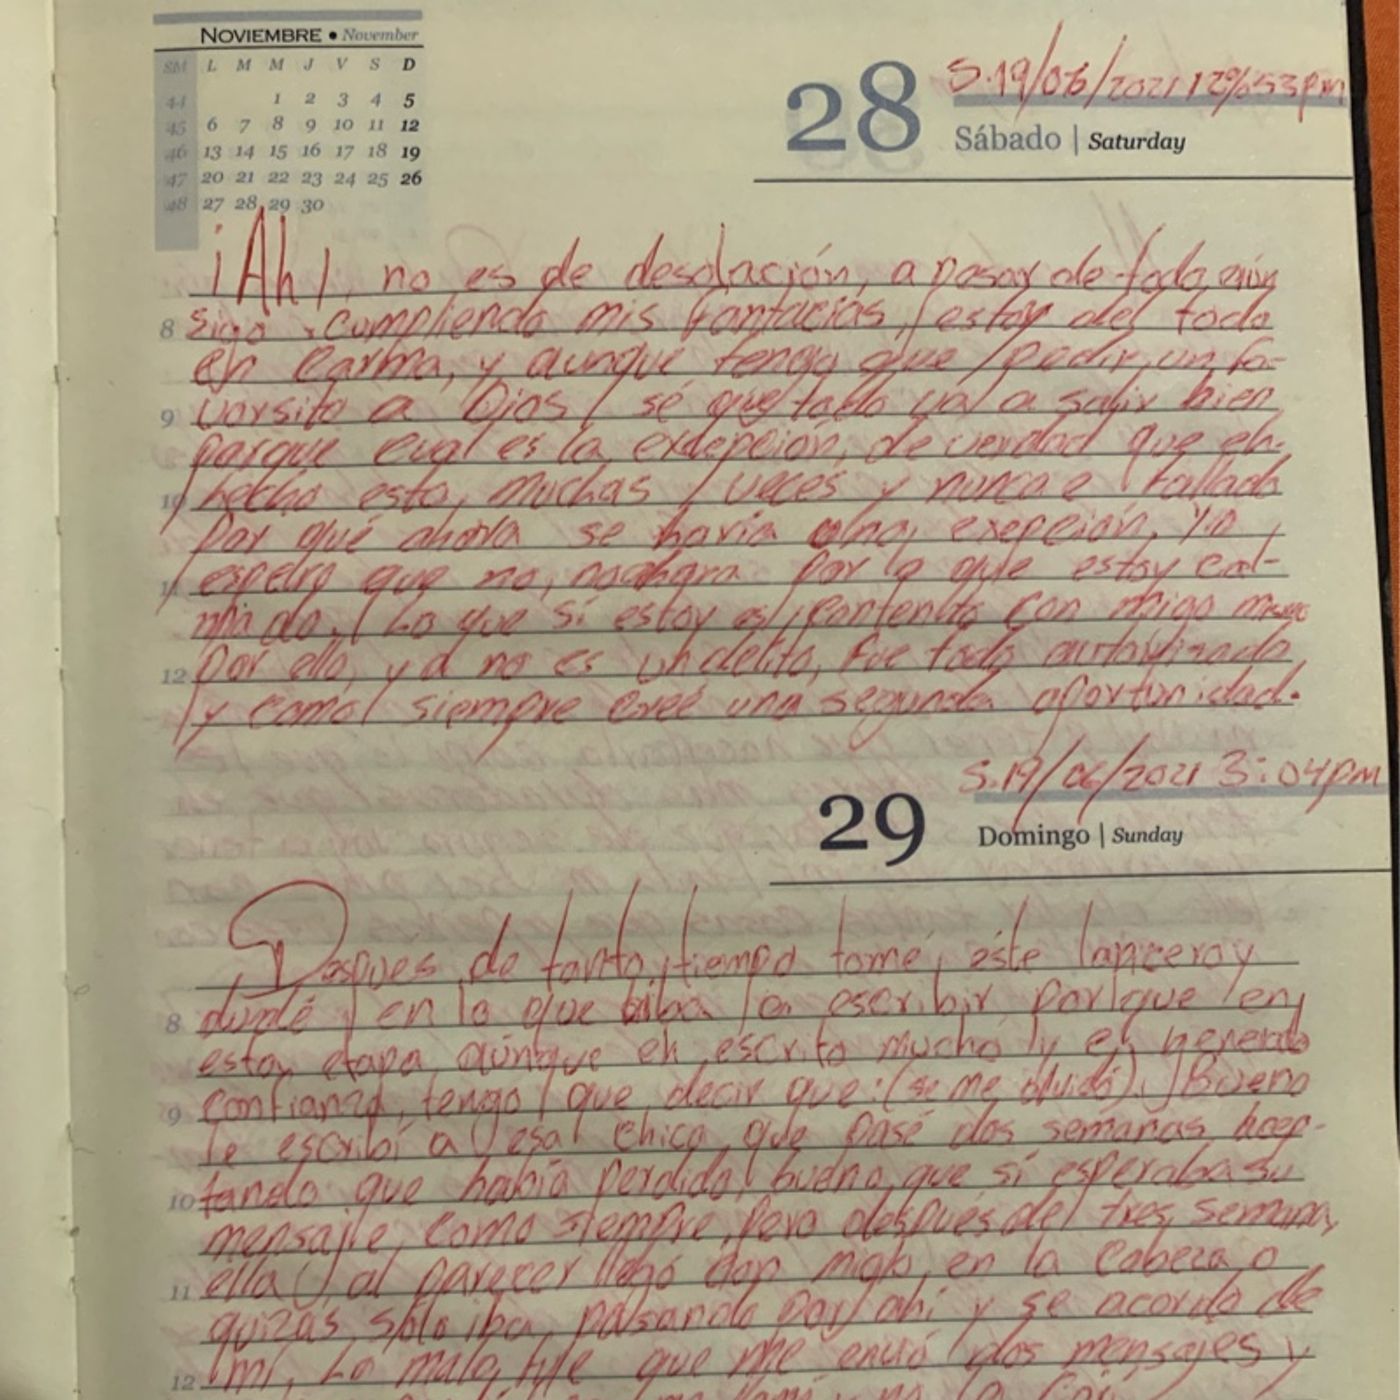 NOVIEMBRE • November
SM L M M J V S D
44 1 2 3 4 5
45 6 7 8 9 10 11 12
46 13 14 15 16 17 18 19
47 20 21 22 23 24 25 26
48 27 28 29 30
28
S.19/06/2021 12:53pm
Sábado | Saturday
¡Ah!, no es de desolación, a pesar de todo aún
8 sigo cumpliendo mis fantacias, estoy del todo
en carma, y aunque tengo que pedir un fa-
9 vorsito a Dios, sé que todo va a salir bien
porque cual es la exdepción, de verdad que eh
10 hecho esto, muchas veces y nunca e fallado
por qué ahora se haria una exepción, yo
11 espero que no, por lo que estoy cal-
mado. Lo que sí estoy es contento con migo mismo
12 por ello, y no es un delito, fue todo
y como siempre creé una segunda oportunidad.
29
S.19/06/2021 3:04pm
Domingo | Sunday
Despues de tanto tiempo tomé este lapicero y
8 dudé en lo que iba a escribir, porque en
esta etapa aúnque eh escrito mucho y eh generado
9 confianza, tengo que decir que: (se me olvidó). Bueno
le escribí a esa chica que pasé dos semanas hacep-
10 tando que había perdido, bueno que sí esperaba su
mensaje, como siempre, pero después de tres semana,
11 ella al parecer llegó en la cabeza o
quizas sólo iba pasando por ahi y se acordo de
12 mí, Lo malo fue que me envió dos mensajes y